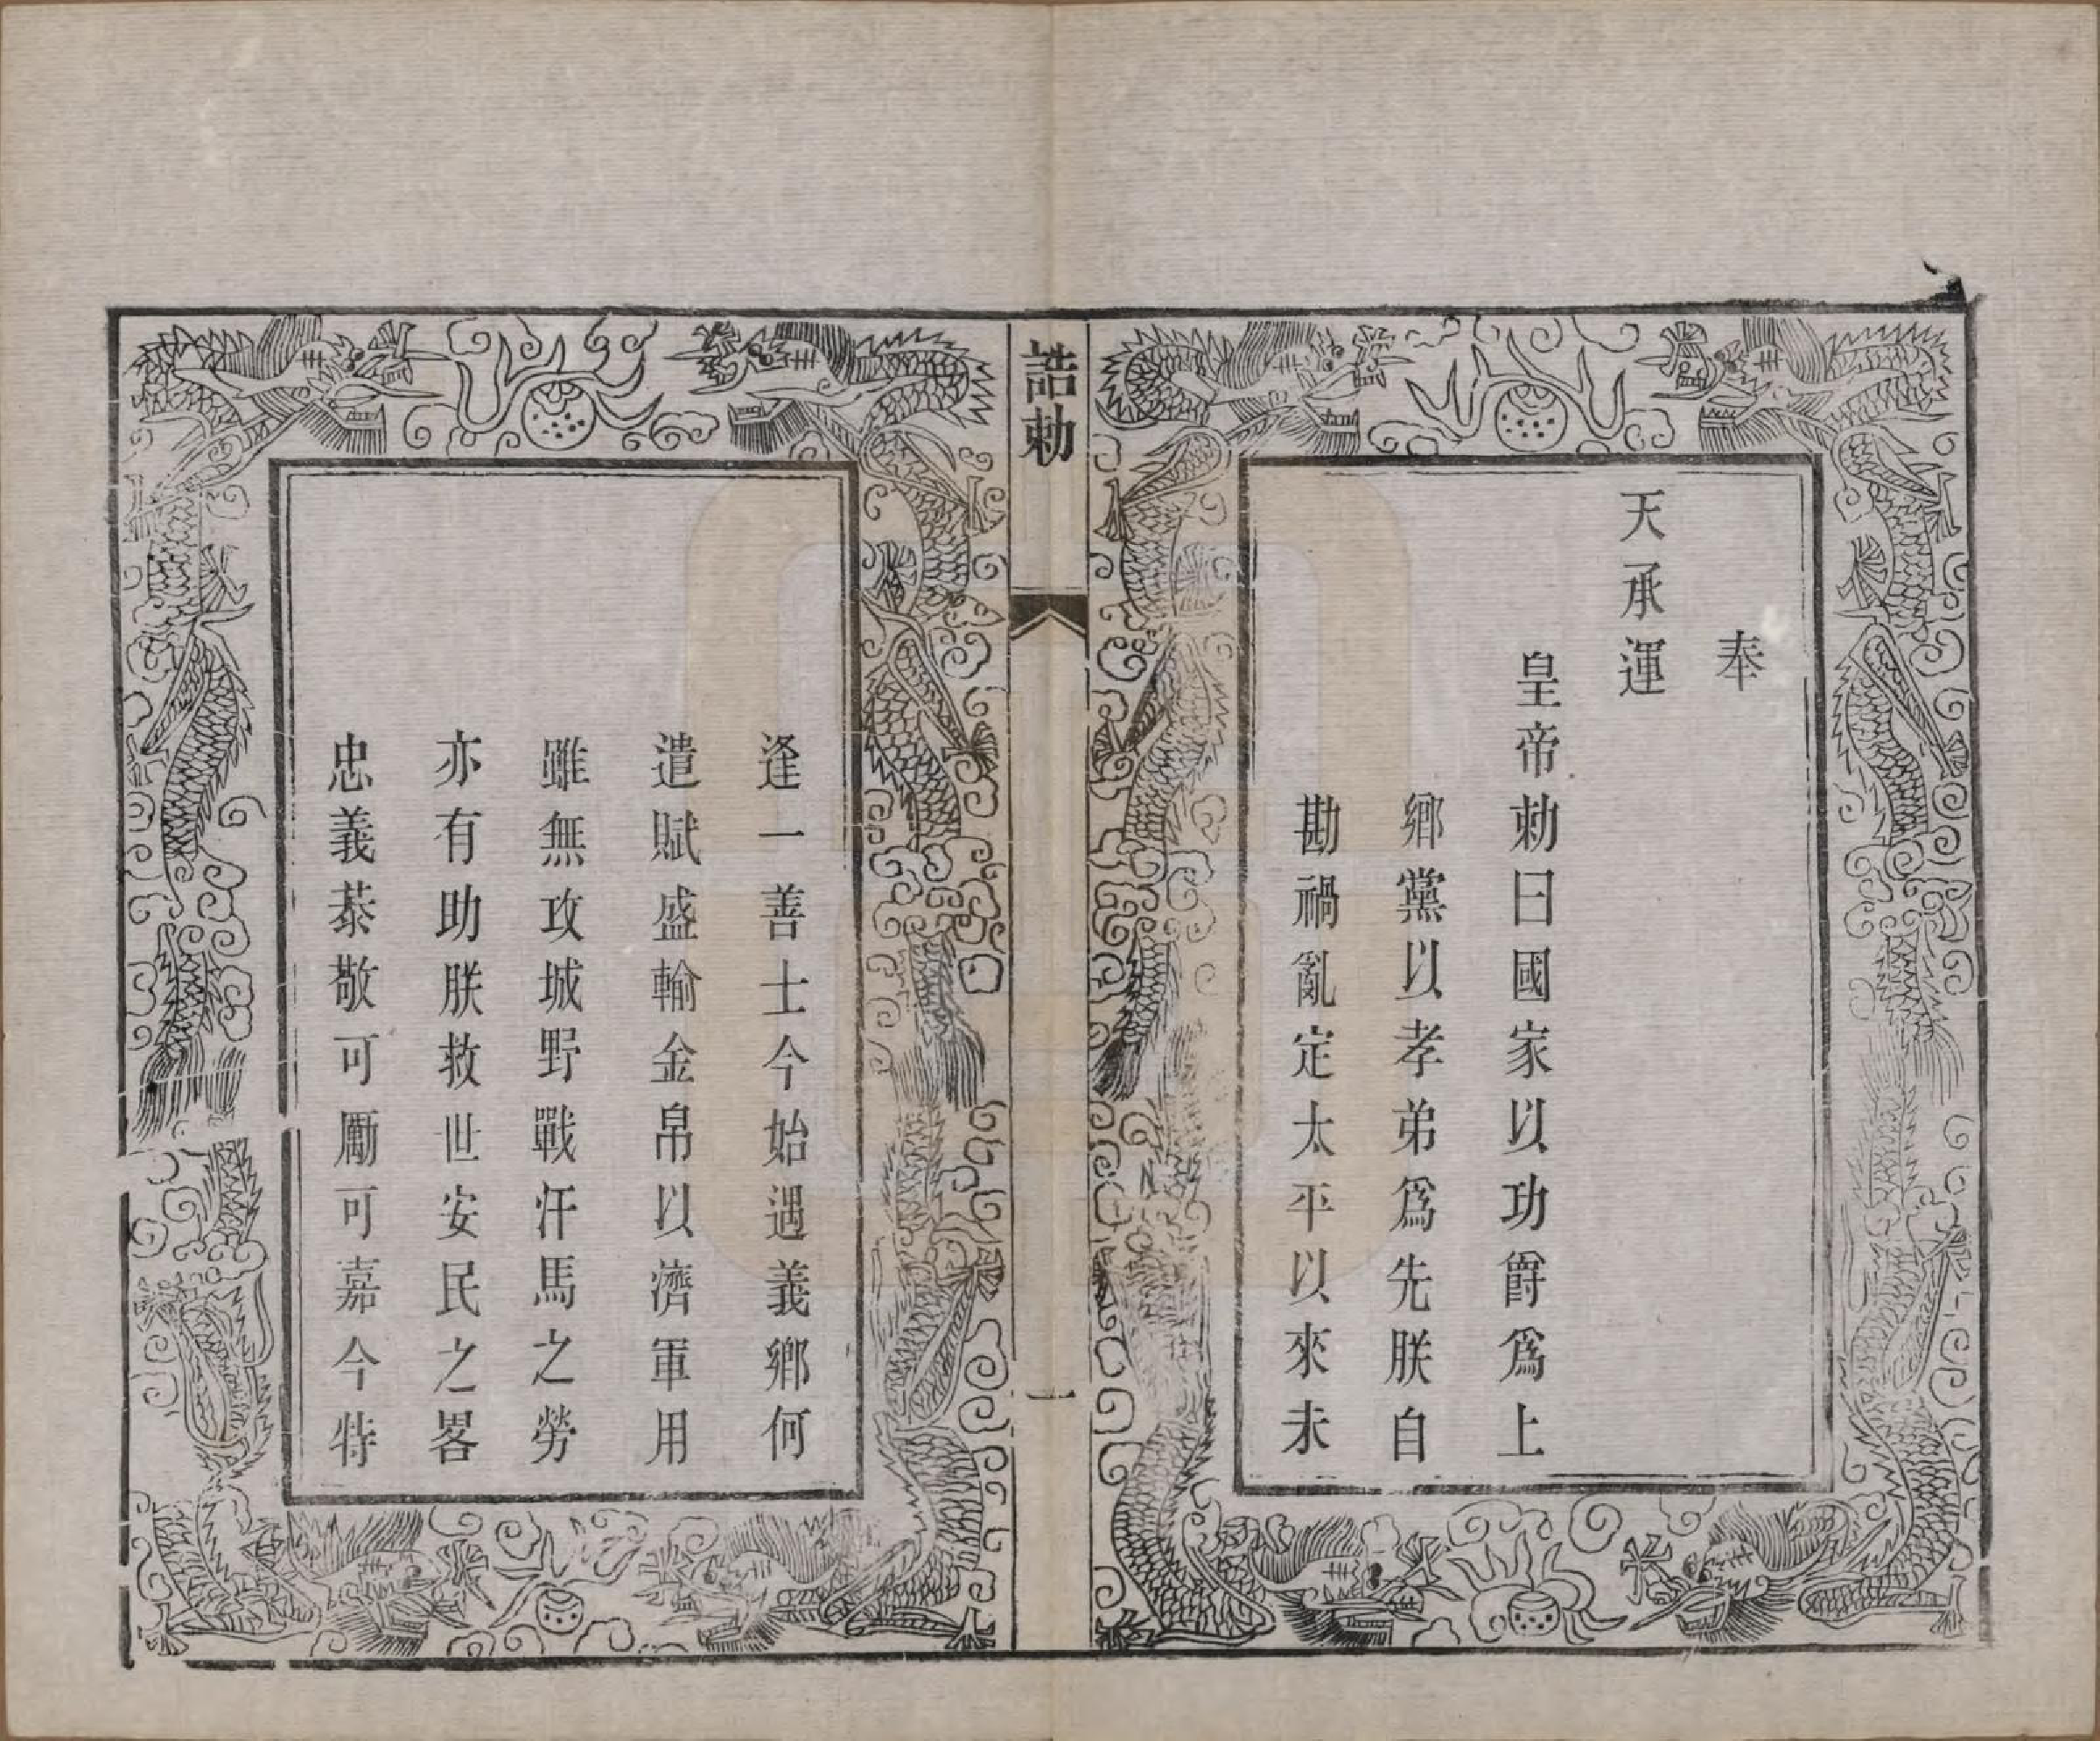 奉
天承運
皇帝勅曰國家以功爵爲上
鄉黨以孝弟爲先朕自
勘禍亂定太平以來未
誥勅
一
逢一善士今始遇義鄉何
遣賦盛輸金帛以濟軍用
雖無攻城野戰汗馬之勞
亦有助朕救世安民之畧
忠義恭敬可勵可嘉今特